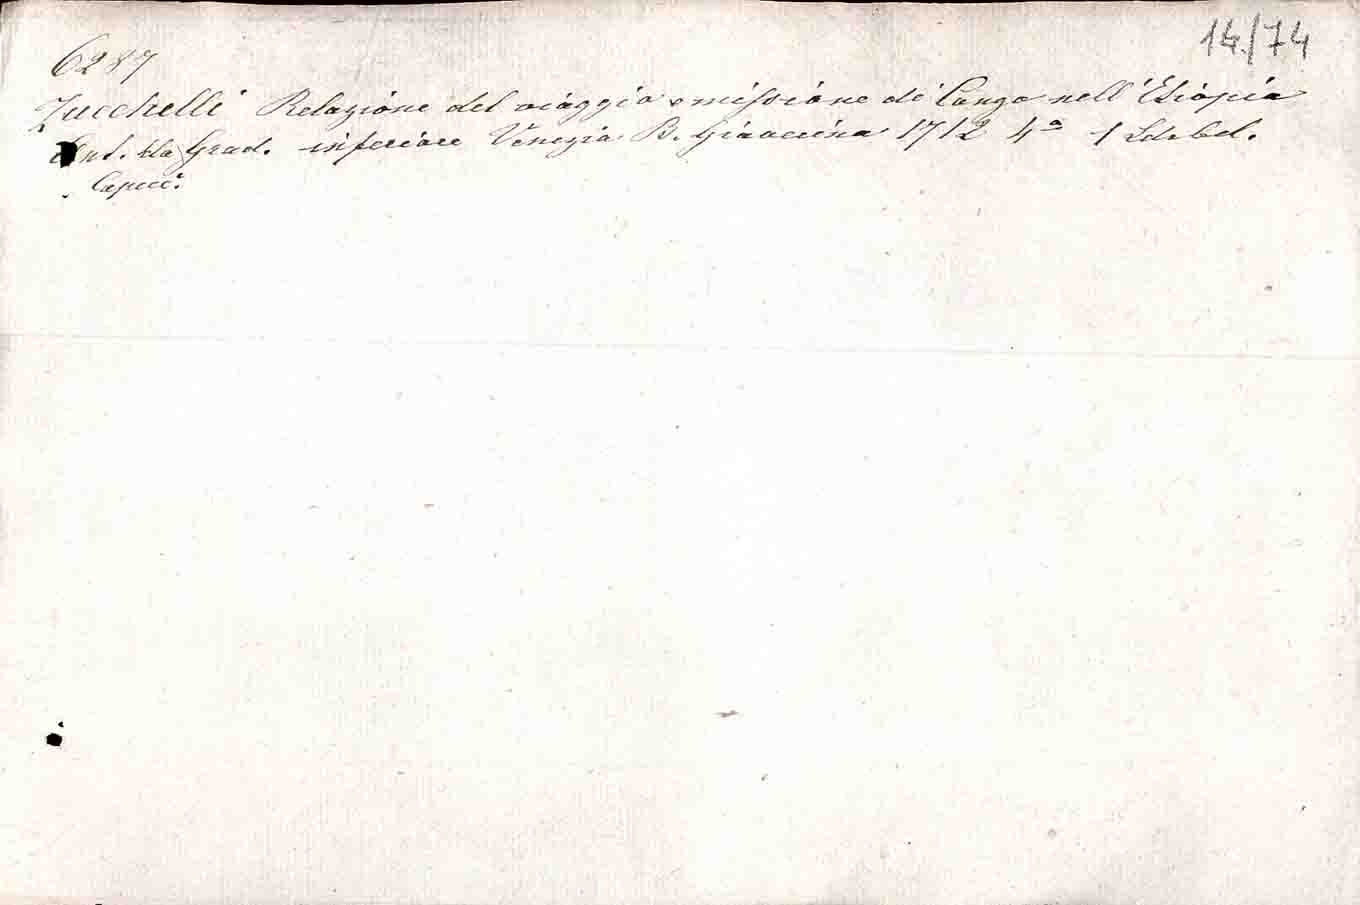 14./74
6287
Zucchelli Relazione del viaggio e missione di Congo nell'Etiopia
Ant. da Grad. inferiore Venezia B. Giavarina 1712 4º 1 Ldrbd.
Capuc.